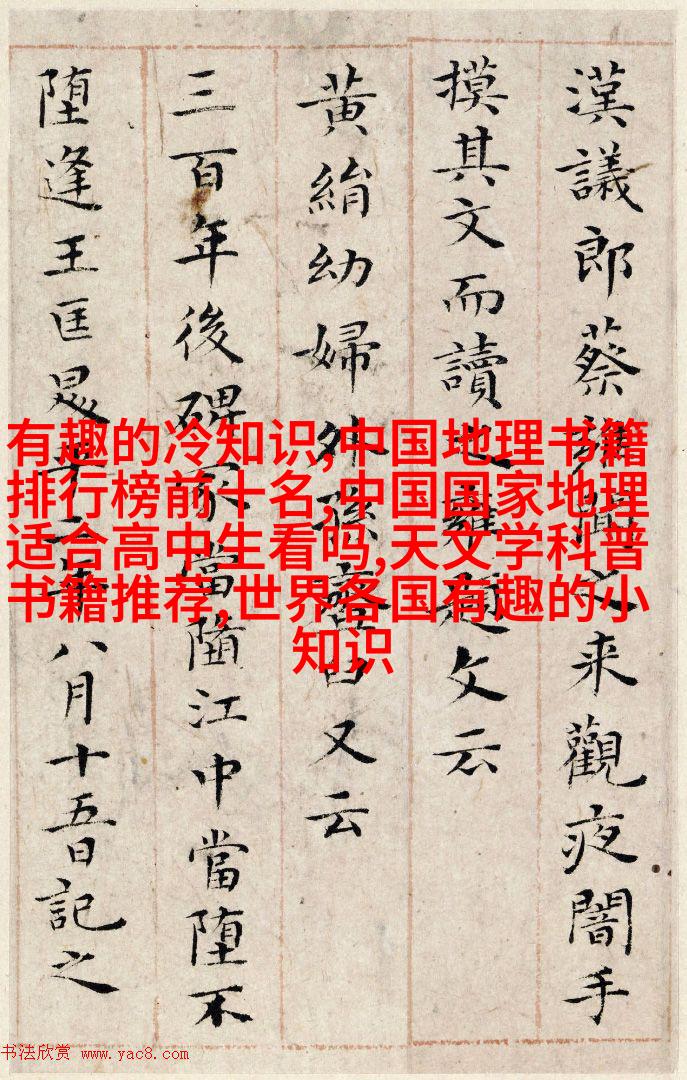 漢議郎蔡雍聞之来觀夜闇手
摸其文而讀之雍題文云
黄絹幼婦外孫齏臼又云
三百年後碑冢當墮江中當墮不
墮逢王匡昇平二年八月十五日記之
有趣的冷知识,中国地理书籍
排行榜前十名,中国国家地理
适合高中生看吗,天文学科普
书籍推荐,世界各国有趣的小
知识
书法欣赏 www.yac8.com